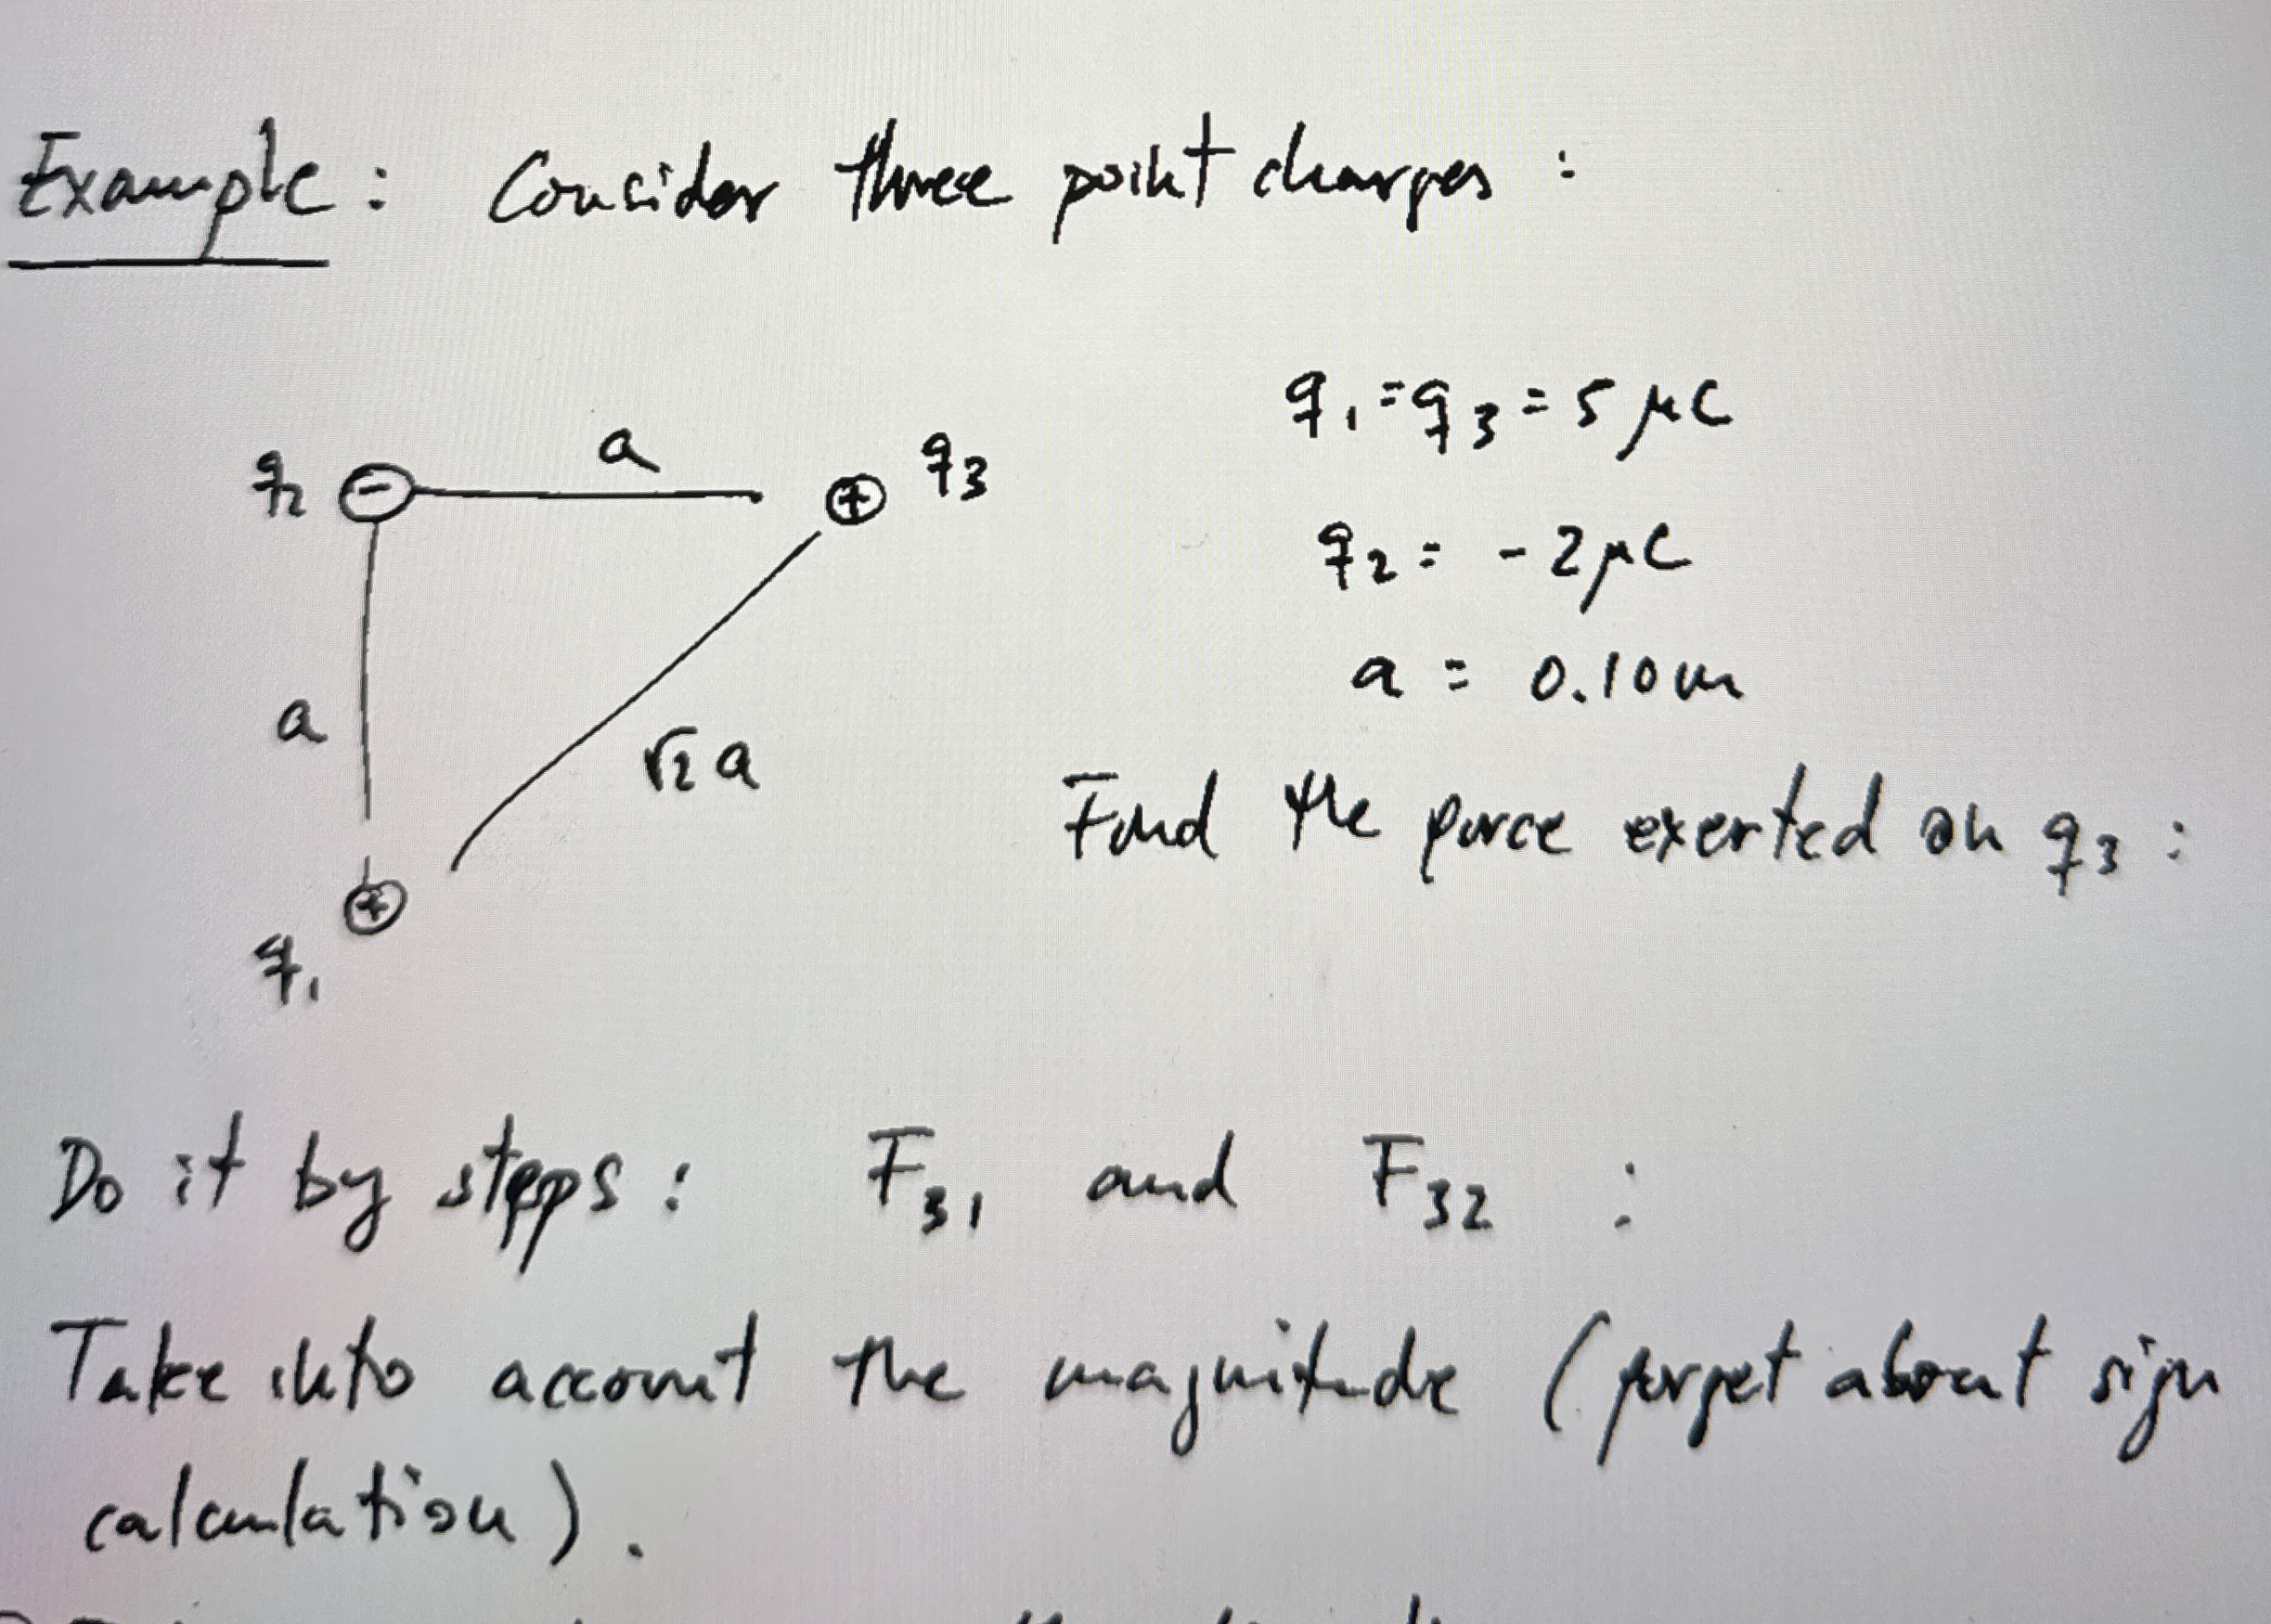 Example: Consider three point charges:
a
q2 - + q3
q1 = q3 = 5 μC
q2 = - 2 μC
a
a = 0.10 m
√2 a
Find the force exerted on q3:
+
q1
Do it by steps: F31 and F32 :
Take into account the magnitude (forget about sign
calculation).